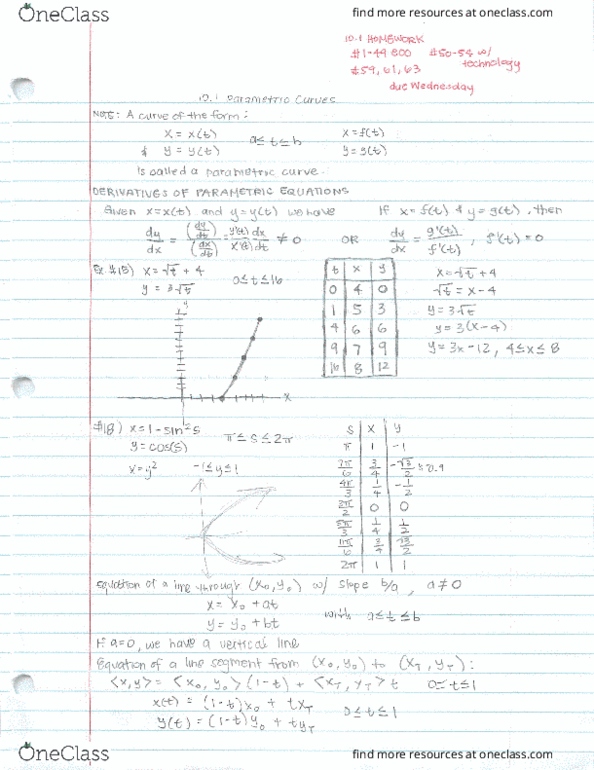 OneClass
find more resources at oneclass.com
10.1 HOMEWORK
#1-49 EOO #50-54 w/ technology
#59, 61, 63
due Wednesday
10.1 Parametric Curves
NOTE: A curve of the form:
x = x(t) a ≤ t ≤ b x = f(t)
& y = y(t) y = g(t)
is called a parametric curve.
DERIVATIVES OF PARAMETRIC EQUATIONS
Given x = x(t) and y = y(t) we have If x = f(t) & y = g(t), then
dy/dx = (dy/dt)/(dx/dt) = y'(t)/x'(t) dx/dt ≠ 0 OR dy/dx = g'(t)/f'(t), f'(t) = 0
Ex. #15) x = √t + 4 0 ≤ t ≤ 16
y = 3√t
y
x
t x y
0 4 0
1 5 3
4 6 6
9 7 9
16 8 12
x = √t + 4
√t = x - 4
y = 3√t
y = 3(x - 4)
y = 3x - 12, 4 ≤ x ≤ 8
#18) x = 1 - sin²s π ≤ s ≤ 2π
y = cos(s)
x = y² -1 ≤ y ≤ 1
s x y
π 1 -1
7π/6 3/4 -√3/2 ≈ 0.9
4π/3 1/4 -1/2
3π/2 0 0
5π/3 1/4 1/2
11π/6 3/4 √3/2
2π 1 1
Equation of a line through (x₀, y₀) w/ slope b/a, a ≠ 0
x = x₀ + at
y = y₀ + bt with a ≤ t ≤ b
If a = 0, we have a vertical line
Equation of a line segment from (x₀, y₀) to (x_T, y_T):
<x, y> = <x₀, y₀>(1 - t) + <x_T, y_T>t 0 ≤ t ≤ 1
x(t) = (1 - t)x₀ + tx_T
y(t) = (1 - t)y₀ + ty_T 0 ≤ t ≤ 1
OneClass
find more resources at oneclass.com